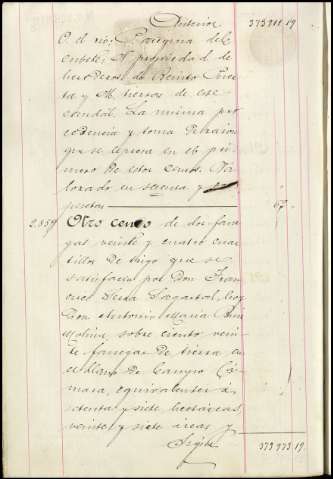 Anterior 373.911.19.
O. el rio; Paragina del
Oubelle; N propiedad de
herederos de Benito
ta y M. tierras de este
caudal. La misma pro
cedencia y toma de razon
que se expresa en el pri
mero de estos censos. Va
lorado en sesenta y
pesetas 67.
2.859 Otro censo de dos fane
gas, veinte y cuatro cuar
tillos de trigo que se
satisface por Don Fran
cisco Sagastal, hoy
Don Antonio Maria
Molina, sobre ciento vein
te fanegas de tierra, en
el llano de Campo
mara, equivalentes á
setenta y siete hectáreas,
veinte y siete áreas y
Sigue 373.973.19.